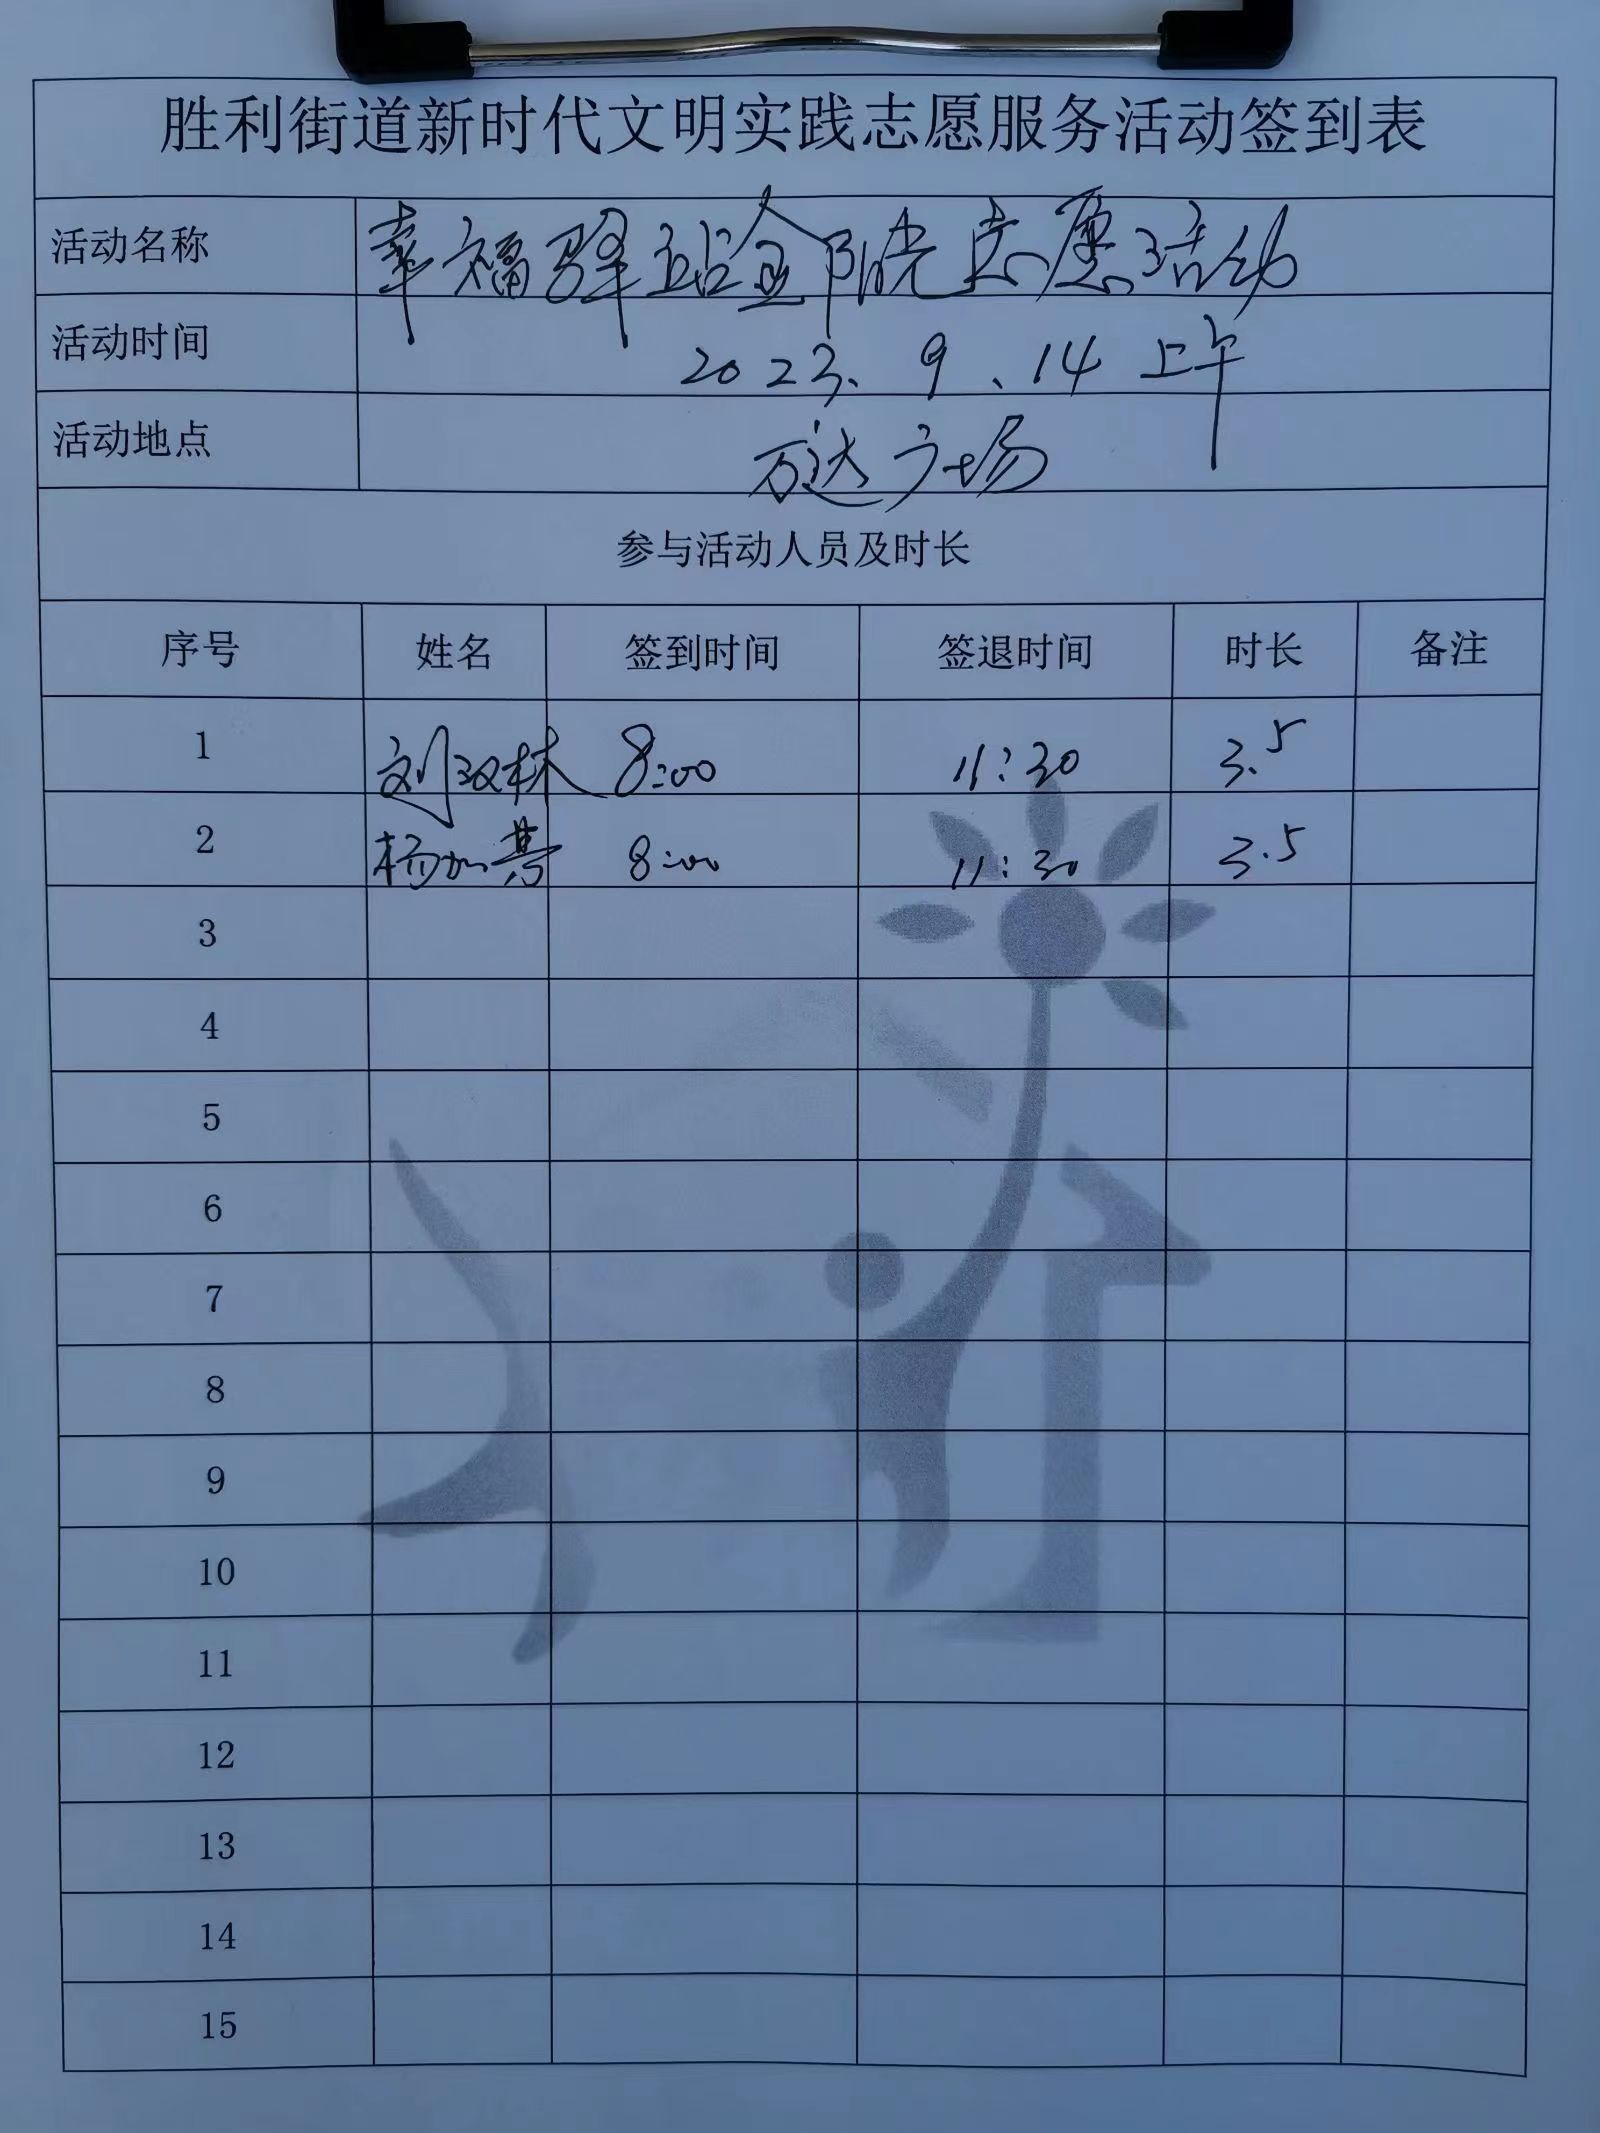 胜利街道新时代文明实践志愿服务活动签到表
活动名称 幸福驿站金阳光志愿活动
活动时间 2023.9.14上午
活动地点 万达广场
参与活动人员及时长
序号 姓名 签到时间 签退时间 时长 备注
1 刘双林 8:00 11:30 3.5
2 杨加 8:00 11:30 3.5
3
4
5
6
7
8
9
10
11
12
13
14
15